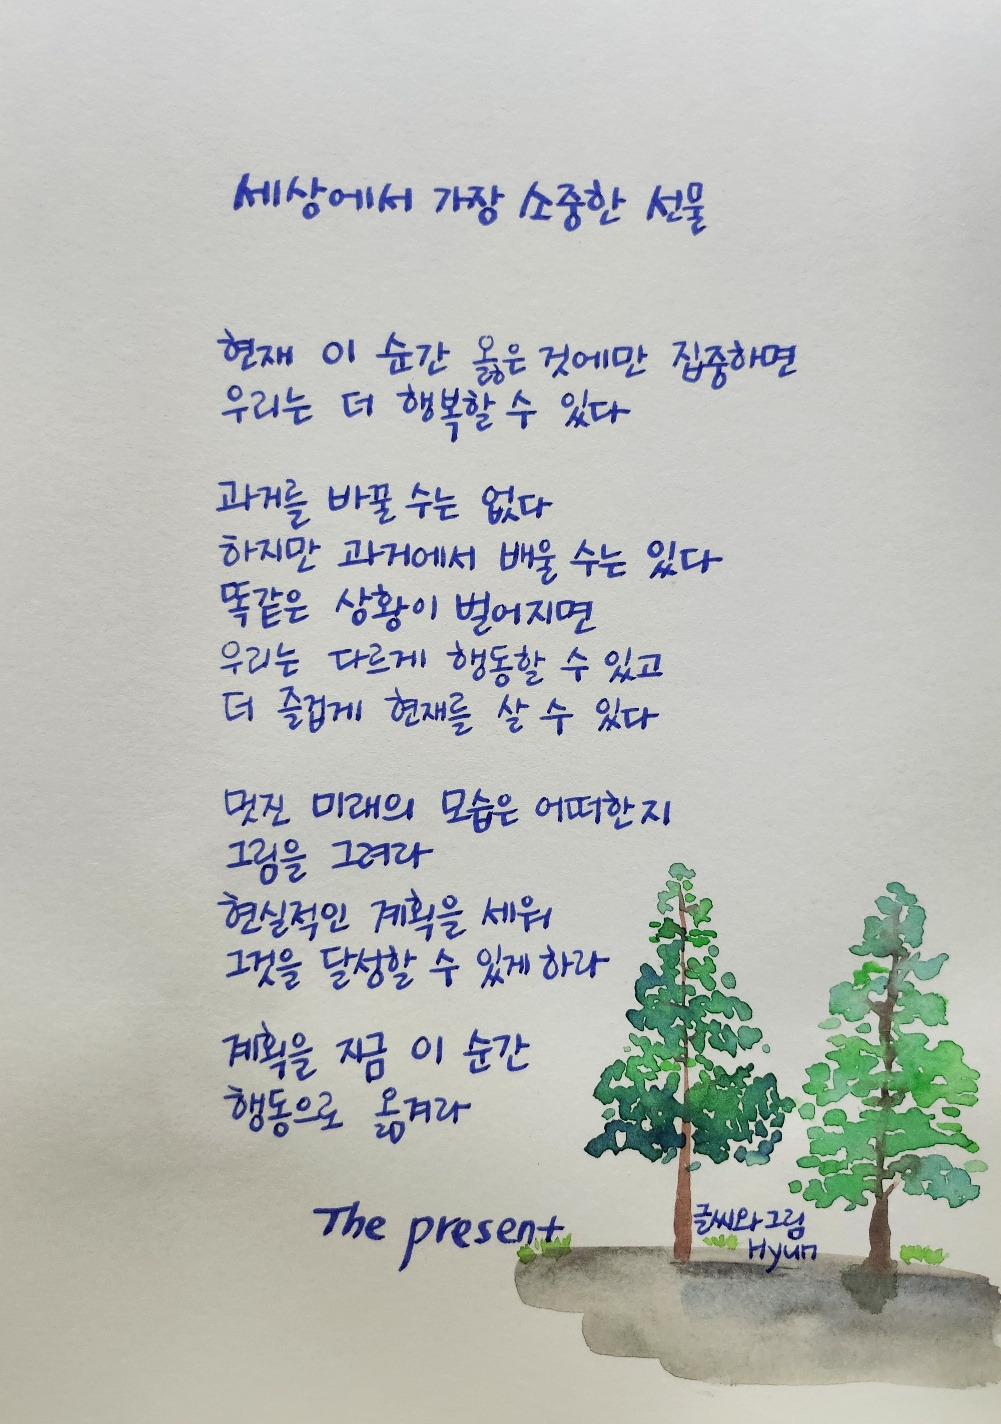 세상에서 가장 소중한 선물
현재 이 순간 옳은 것에만 집중하면
우리는 더 행복할 수 있다
과거를 바꿀 수는 없다
하지만 과거에서 배울 수는 있다
똑같은 상황이 벌어지면
우리는 다르게 행동할 수 있고
더 즐겁게 현재를 살 수 있다
멋진 미래의 모습은 어떠한지
그림을 그려라
현실적인 계획을 세워
그것을 달성할 수 있게 하라
계획을 지금 이 순간
행동으로 옮겨라
The present
글씨와 그림
Hyun